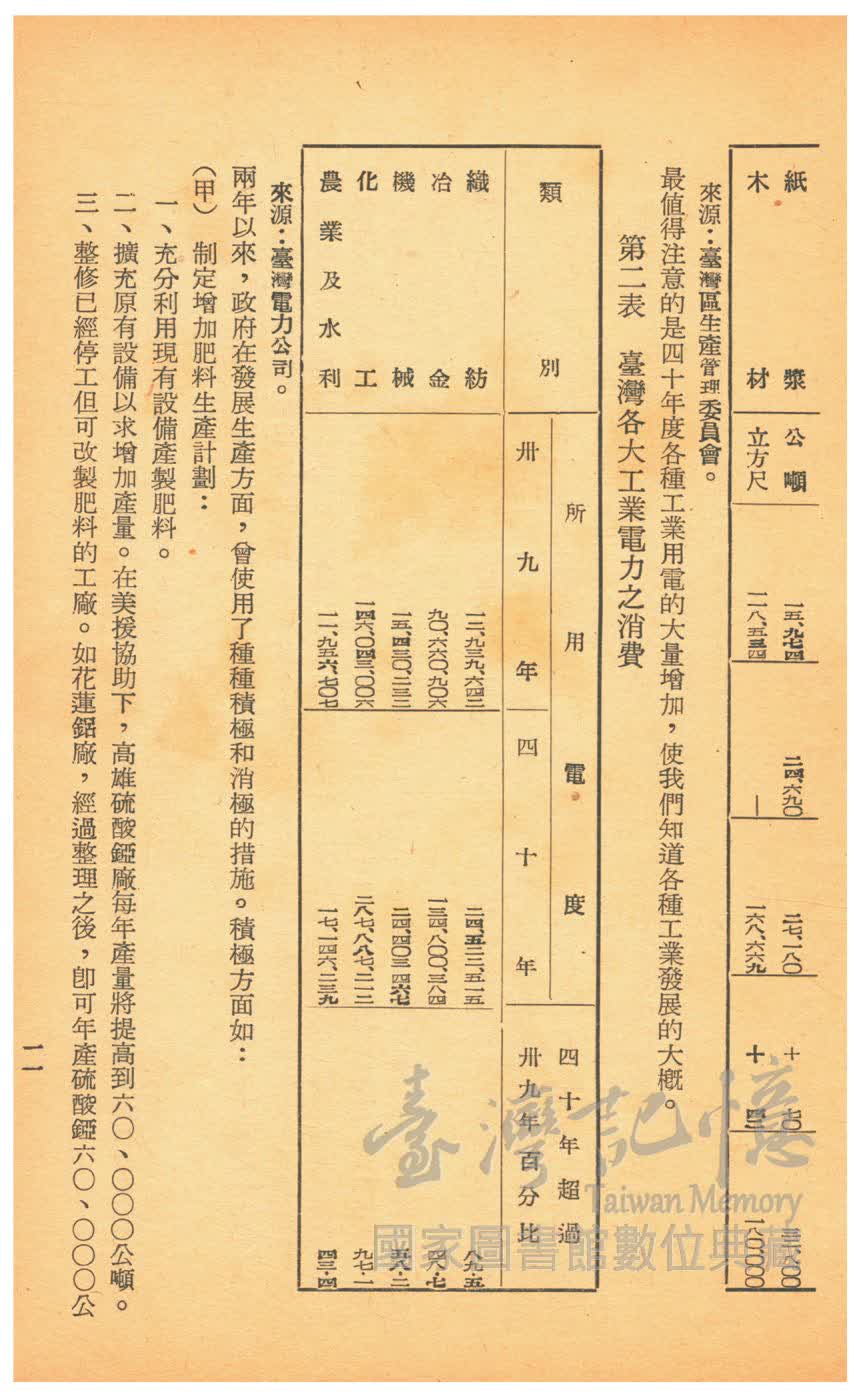 紙漿 公噸 一五、九七四 二四、六九〇 二七、一八〇 十 七〇
木材 立方尺 一一八、五三四 — 一六八、六六九 十 四 一八〇、〇〇〇
來源：臺灣區生產管理委員會。
最值得注意的是四十年度各種工業用電的大量增加，使我們知道各種工業發展的大槪。
第二表 臺灣各大工業電力之消費
類別 所用電度 四十年超過
卅九年 四十年 卅九年百分比
織紡 一二、九三九、六四二 二四、五二二、五一五 八九·五
冶金 九〇、六六〇、九〇六 一三四、八〇〇、三八四 四八·七
機械 一五、四三〇、二三二 二四、四〇三、四六七 五八·二
化工 一四六、〇四三、〇〇六 二八七、八八七、二一二 九七·一
農業及水利 一一、九五六、七〇七 一七、一四六、二三九 四三·四
來源：臺灣電力公司。
兩年以來，政府在發展生產方面，曾使用了種種積極和消極的措施。積極方面如：
（甲） 制定增加肥料生產計劃：
一、充分利用現有設備產製肥料。
二、擴充原有設備以求增加產量。在美援協助下，高雄硫酸錏廠每年產量將提高到六〇、〇〇〇公噸。
三、整修已經停工但可改製肥料的工廠。如花蓮鋁廠，經過整理之後，卽可年產硫酸錏六〇、〇〇〇公
一一
臺灣記憶
Taiwan Memory
國家圖書館數位典藏